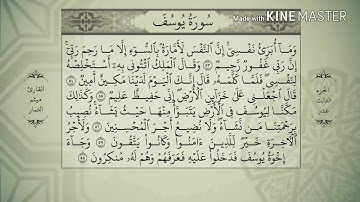 Made with KINEMASTER
سورة يوسف
وَمَا أُبَرِّئُ نَفْسِي إِنَّ النَّفْسَ لَأَمَّارَةٌ بِالسُّوءِ إِلَّا مَا رَحِمَ رَبِّي
إِنَّ رَبِّي غَفُورٌ رَحِيمٌ ٥٣ وَقَالَ الْمَلِكُ ائْتُونِي بِهِ أَسْتَخْلِصْهُ
لِنَفْسِي فَلَمَّا كَلَّمَهُ قَالَ إِنَّكَ الْيَوْمَ لَدَيْنَا مَكِينٌ أَمِينٌ ٥٤
قَالَ اجْعَلْنِي عَلَىٰ خَزَائِنِ الْأَرْضِ إِنِّي حَفِيظٌ عَلِيمٌ ٥٥ وَكَذَٰلِكَ
مَكَّنَّا لِيُوسُفَ فِي الْأَرْضِ يَتَبَوَّأُ مِنْهَا حَيْثُ يَشَاءُ نُصِيبُ
بِرَحْمَتِنَا مَنْ نَشَاءُ وَلَا نُضِيعُ أَجْرَ الْمُحْسِنِينَ ٥٦ وَلَأَجْرُ
الْآخِرَةِ خَيْرٌ لِلَّذِينَ آمَنُوا وَكَانُوا يَتَّقُونَ ٥٧ وَجَاءَ
إِخْوَةُ يُوسُفَ فَدَخَلُوا عَلَيْهِ فَعَرَفَهُمْ وَهُمْ لَهُ مُنْكِرُونَ ٥٨
الجزء
الثالث
عشر
القارئ
ميثم
التمار